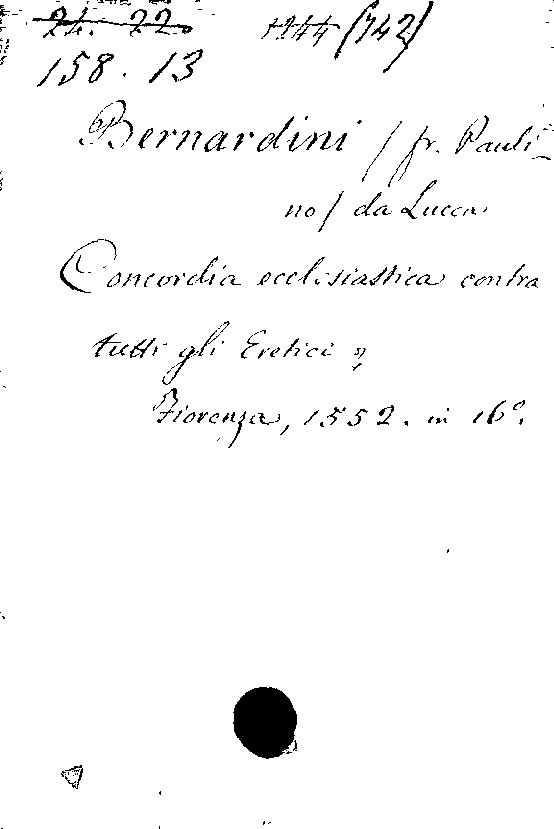 24. 22. 1244 (742)
158. 13
Bernardini / fr. Pauli-
no / da Lucca.
Concordia ecclesiastica contra
tutti gli Eretici
Fiorenza, 1552. in 16º.